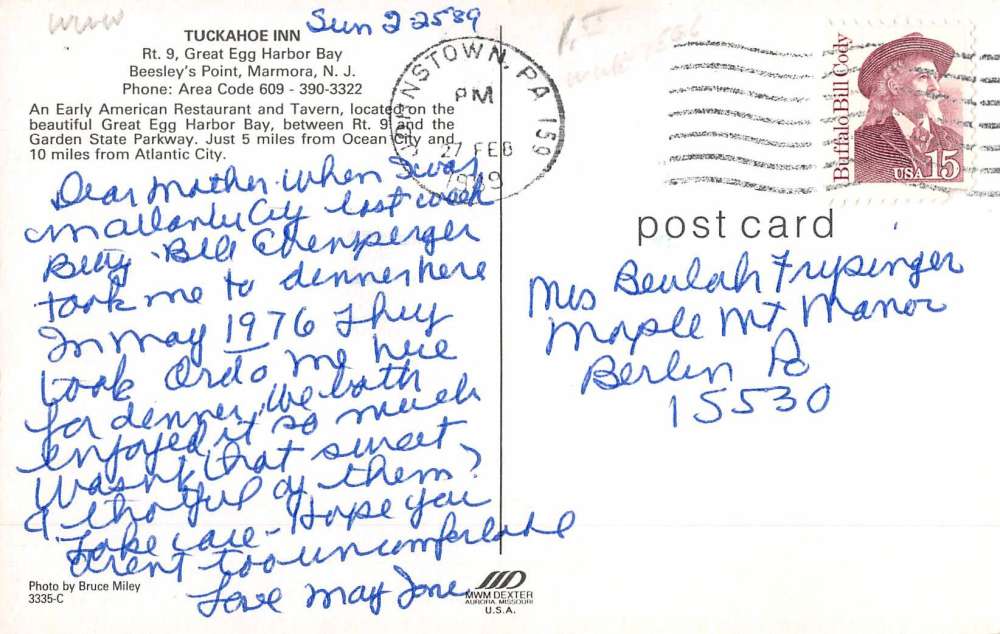 Sun 2-25 89
TUCKAHOE INN
Rt. 9, Great Egg Harbor Bay
Beesley's Point, Marmora, N. J.
Phone: Area Code 609 - 390-3322
An Early American Restaurant and Tavern, located on the
beautiful Great Egg Harbor Bay, between Rt. 9 and the
Garden State Parkway. Just 5 miles from Ocean City and
10 miles from Atlantic City.
Dear Mother. When I was
in Atlantic City last week
Betty Bill
took me to dinner here
In May 1976 They
took Ordo me here
for dinner. We both
enjoyed it so much
Wasn't that sweet
& thotful of them?
Take care - Hope you
arent too uncomferable
Love May Jane
Photo by Bruce Miley
3335-C
MWM DEXTER
AURORA, MISSOURI
U.S.A.
JOHNSTOWN, PA 159
PM
27 FEB
1989
Buffalo Bill Cody
USA 15
post card
Mrs Beulah Frysinger
Maple Mt Manor
Berlin Pa
15530